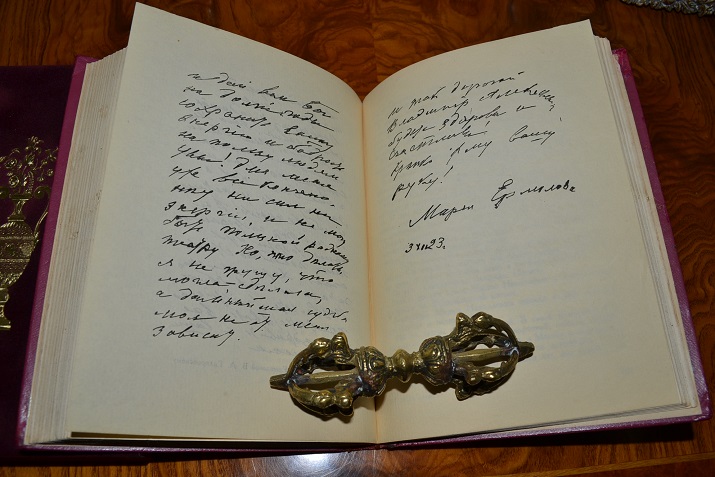 и дай вам Бог
на долгие годы
сохранить вашу
энергию и
на пользу людям
увы! Для меня
уж всё кончено
нету ни сил ни
энергии, и не могу
быть полезной родному
театру. Но, что делать
я не тужу, что
можно сделала,
а дальнейшая судьба
моя не от меня
зависит.
и так дорогой
Владимир Алексеевич
будьте здоровы и
счастливы
крепко жму вашу
руку!
Мария Ермолова
23 г.